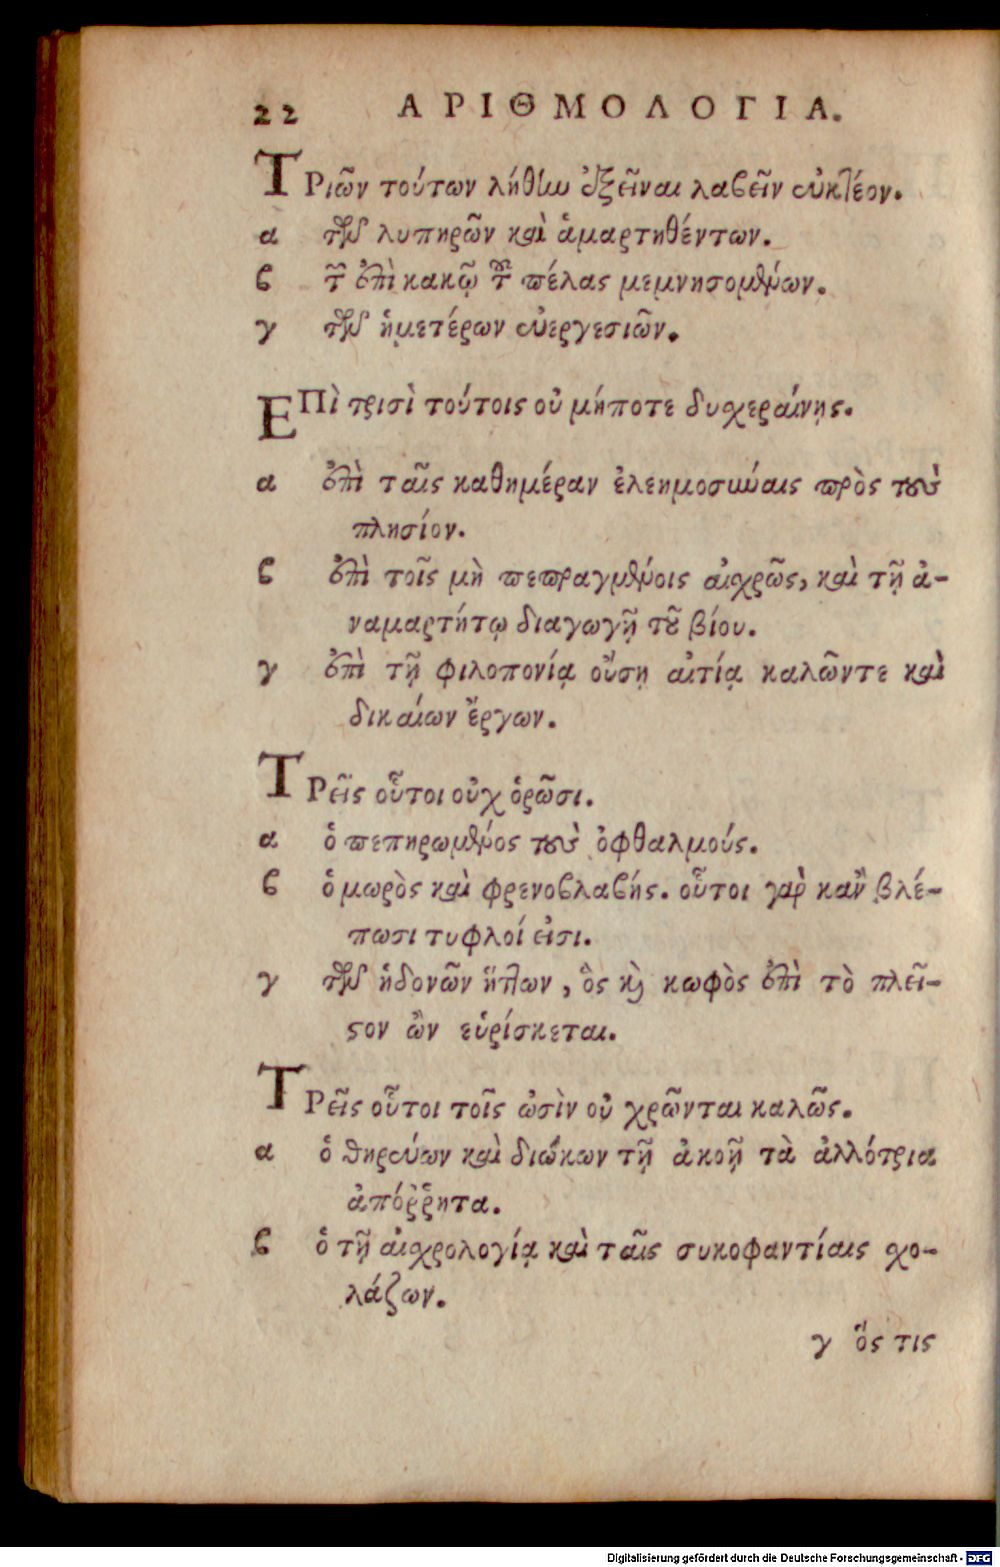 22 ΑΡΙΘΜΟΛΟΓΙΑ.
ΤΡιῶν τούτων λήθην ἐξεῖναι λαβεῖν εὐκτέον.
α τῶν λυπηρῶν καὶ ἁμαρτηθέντων.
ϐ τῶν ἐπὶ κακῷ τοῦ πέλας μεμνησομένων.
γ τῶν ἡμετέρων εὐεργεσιῶν.
ΕΠὶ τρισὶ τούτοις οὐ μήποτε δυχεραίνῃς.
α ἐπὶ ταῖς καθημέραν ἐλεημοσύναις πρὸς τοὺς
πλησίον.
ϐ ἐπὶ τοῖς μὴ πεπραγμένοις αἰσχρῶς, καὶ τῇ ἀ-
ναμαρτήτῳ διαγωγῇ τοῦ βίου.
γ ἐπὶ τῇ φιλοπονίᾳ οὔσῃ αἰτίᾳ καλῶντε καὶ
δικαίων ἔργων.
ΤΡεῖς οὗτοι οὐχ ὁρῶσι.
α ὁ πεπηρωμένος τοὺς ὀφθαλμούς.
ϐ ὁ μωρὸς καὶ φρενοϐλαϐής. οὗτοι γὰρ κἂν βλέ-
πωσι τυφλοί εἰσι.
γ τῶν ἡδονῶν ἥττων, ὃς καὶ κωφὸς ἐπὶ τὸ πλεῖ-
στον ὢν εὑρίσκεται.
ΤΡεῖς οὗτοι τοῖς ὠσὶν οὐ χρῶνται καλῶς.
α ὁ θηρεύων καὶ διώκων τῇ ἀκοῇ τὰ ἀλλότρια
ἀπόῤῥητα.
ϐ ὁ τῇ αἰσχρολογίᾳ καὶ ταῖς συκοφαντίαις σχο-
λάζων.
γ ὅς τις
Digitalisierung gefördert durch die Deutsche Forschungsgemeinschaft - DFG